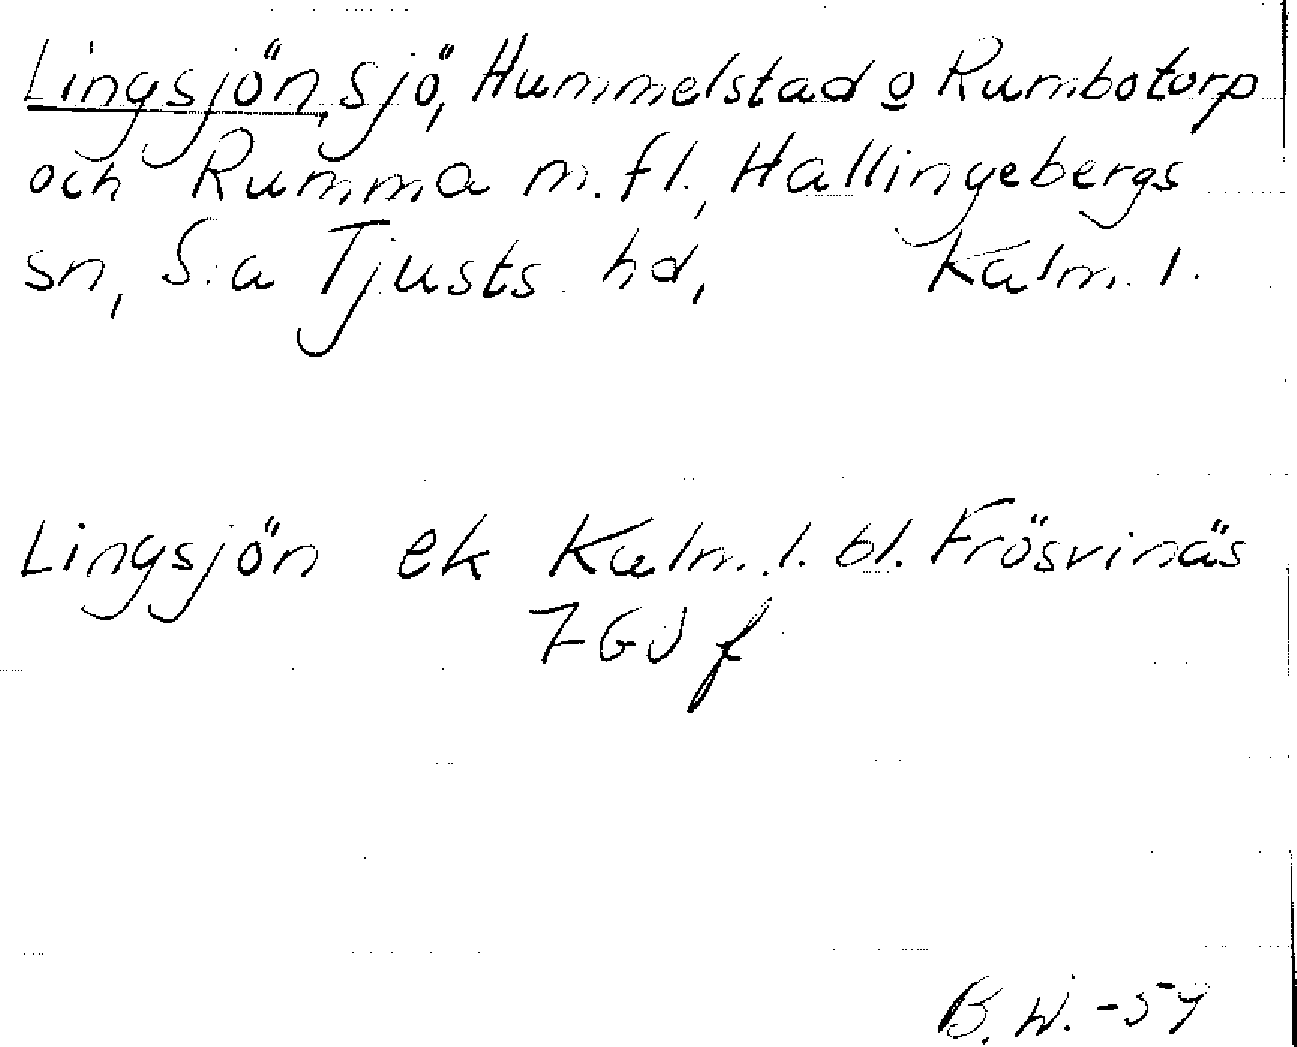 Lingsjön, sjö, Hummelstad o Rumbotorp
och Rumma m.fl., Hallingebergs
sn, S:a Tjusts hd, Kalm. l.
Lingsjön ek Kalm. l. bl. Frösvinäs
7GV f
B. W. -54